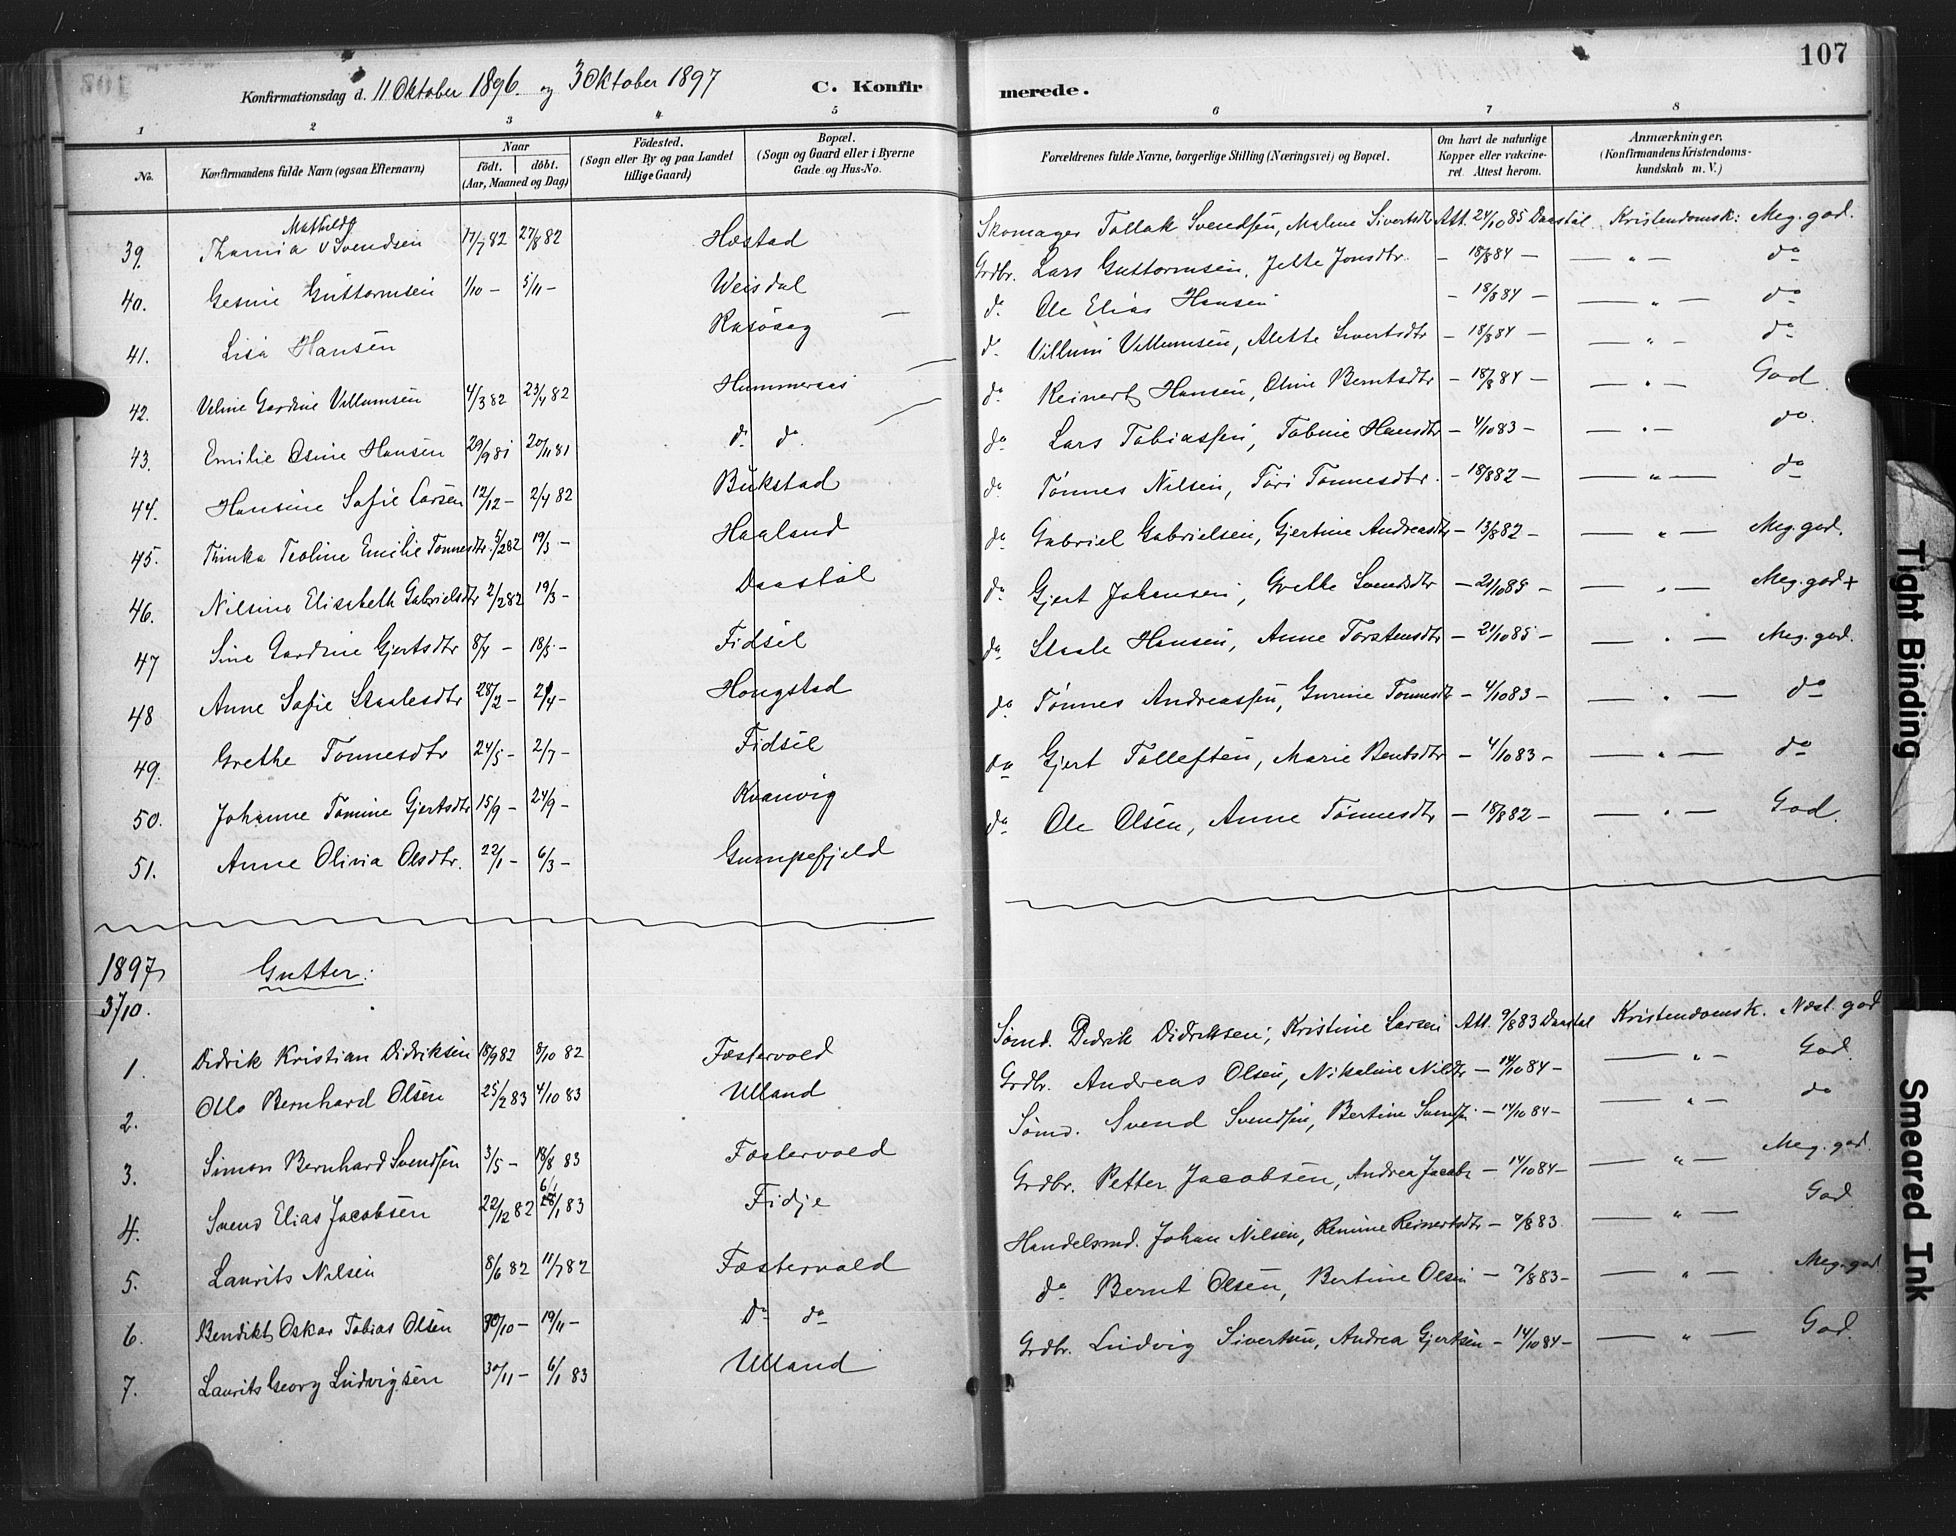 107
Konfirmationsdag d. 11 Oktober 1896. og 3 Oktober 1897 C. Konfirmerede.
1 2 3 4 5 6 7 8
No.
Konfirmandens fulde Navn (ogsaa Efternavn)
Naar
födt. döbt.
(Aar, Maaned og Dag)
Födested.
(Sogn eller By og paa Landet
tillige Gaard)
Bopæl.
(Sogn og Gaard eller i Byerne
Gade og Hus-No.
Forældrenes fulde Navne, borgerlige Stilling (Næringsvei) og Bopæl.
Om havt de naturlige
Kopper eller vakcine-
ret. Attest herom.
Anmærkninger.
(Konfirmandens Kristendoms-
kundskab m. V.)
39. Thamia Mathilde Svendsen 17/7 82 27/8 82 Høstad Skomager Tollak Svendsen, Malene Sivertsdtr Att. 24/10 85 Daastøl Kristendomsk: Meg. god.
40. Gesine Guttormsen 1/10 – 5/11 – Weisdal Grdbr. Lars Guttormsen, Jette Jonsdtr. – 18/8 84 – — " — do
41. Lisa Hansen Rasövag – do Ole Elias Hansen – 18/8 84 – — " — do
42. Veline Gardine Villumsen 4/3 82 23/4 82 Hummersøi do Villum Villumsen, Alette Sivertsdtr – 18/8 84 – — " — do
43. Emilie Osine Hansen 29/9 81 20/11 81 do do do Reinert Hansen, Oline Berntsdtr – 18/8 84 – — " — God
44. Hansine Sofie Larsen 12/12 – 2/4 82 Bukstad do Lars Tobiassen, Tobine Hansdtr – 4/10 83 – — " — do
45. Thinka Teoline Emilie Tønnesdtr. 5/2 82 19/3 – Haaland do Tønnes Nilsen, Tori Tønnesdtr. – 18/8 82 – — " — do
46. Nilsine Elisabeth Gabrielsdtr 2/2 82 19/3 – Daastøl do Gabriel Gabrielsen, Gjertine Andreasdtr – 13/8 82 – — " — Meg. god.
47 Sine Gardine Gjertsdtr 8/4 – 18/5 – Fidsel do Gjert Johansen, Grethe Svendsdtr – 21/10 85 – — " — Meg. god +
48 Anne Sofie Staalesdtr 28/2 – 2/4 – Hougstad do Staale Hansen, Anne Torstensdtr – 21/10 85 – — " — Meg. god.
49. Grethe Tønnesdtr 24/5 – 2/7 – Fidsel do Tønnes Andreassen, Gurine Tønnesdtr – 4/10 83 – — " — do
50. Johanne Tomine Gjertsdtr 15/9 – 24/9 – Kvanvig do Gjert Tolleften, Marie Bentsdtr – 4/10 83 – — " — do
51. Anne Olivia Olsdtr. 22/1 – 6/3 – Gumpefjeld do Ole Olsen, Anne Tønnesdtr – 18/8 82 – — " — God.
1897 Gutter:
3/10.
1. Didrik Kristian Didriksen 18/9 82 8/10 82 Fæstervold Sømd. Didrik Didriksen, Kristine Larsen Att. 9/8 83 Daastøl Kristendomsk. Næst. god
2. Olla Bernhard Olsen 25/2 83 4/10 83 Ulland Grdbr. Andreas Olsen, Nikoline Nilsdtr – 14/10 84 – — " — God.
3. Simon Bernhard Svendsen 3/5 – 18/8 83 Fæstervold Sømd. Svend Svendsen, Bertine Svendsen – 14/10 84 – — " — do
4. Svend Elias Jacobsen 22/12 82 6/1 83 Fidje Grdbr. Petter Jacobsen, Andrea Jacobs – 14/10 84 – — " — Meg. god.
5. Laurits Nilsen 8/6 82 11/7 82 Fæstervold Handelsmd. Johan Nilsen, Remine Reinertsdtr – 7/8 83. — " — God
6. Bendikt Oskar Tobias Olsen 30/10 – 19/11 – Do do do Bernt Olsen, Bertine Olsen – 7/8 83 – — " — Meg. god.
7. Laurits Georg Ludvigsen 30/11 – 6/1 83 Ulland Grdbr. Ludvig Sivertsen, Andrea Gjertsen – 14/10 84 – — " — God.
Tight Binding
Smeared Ink